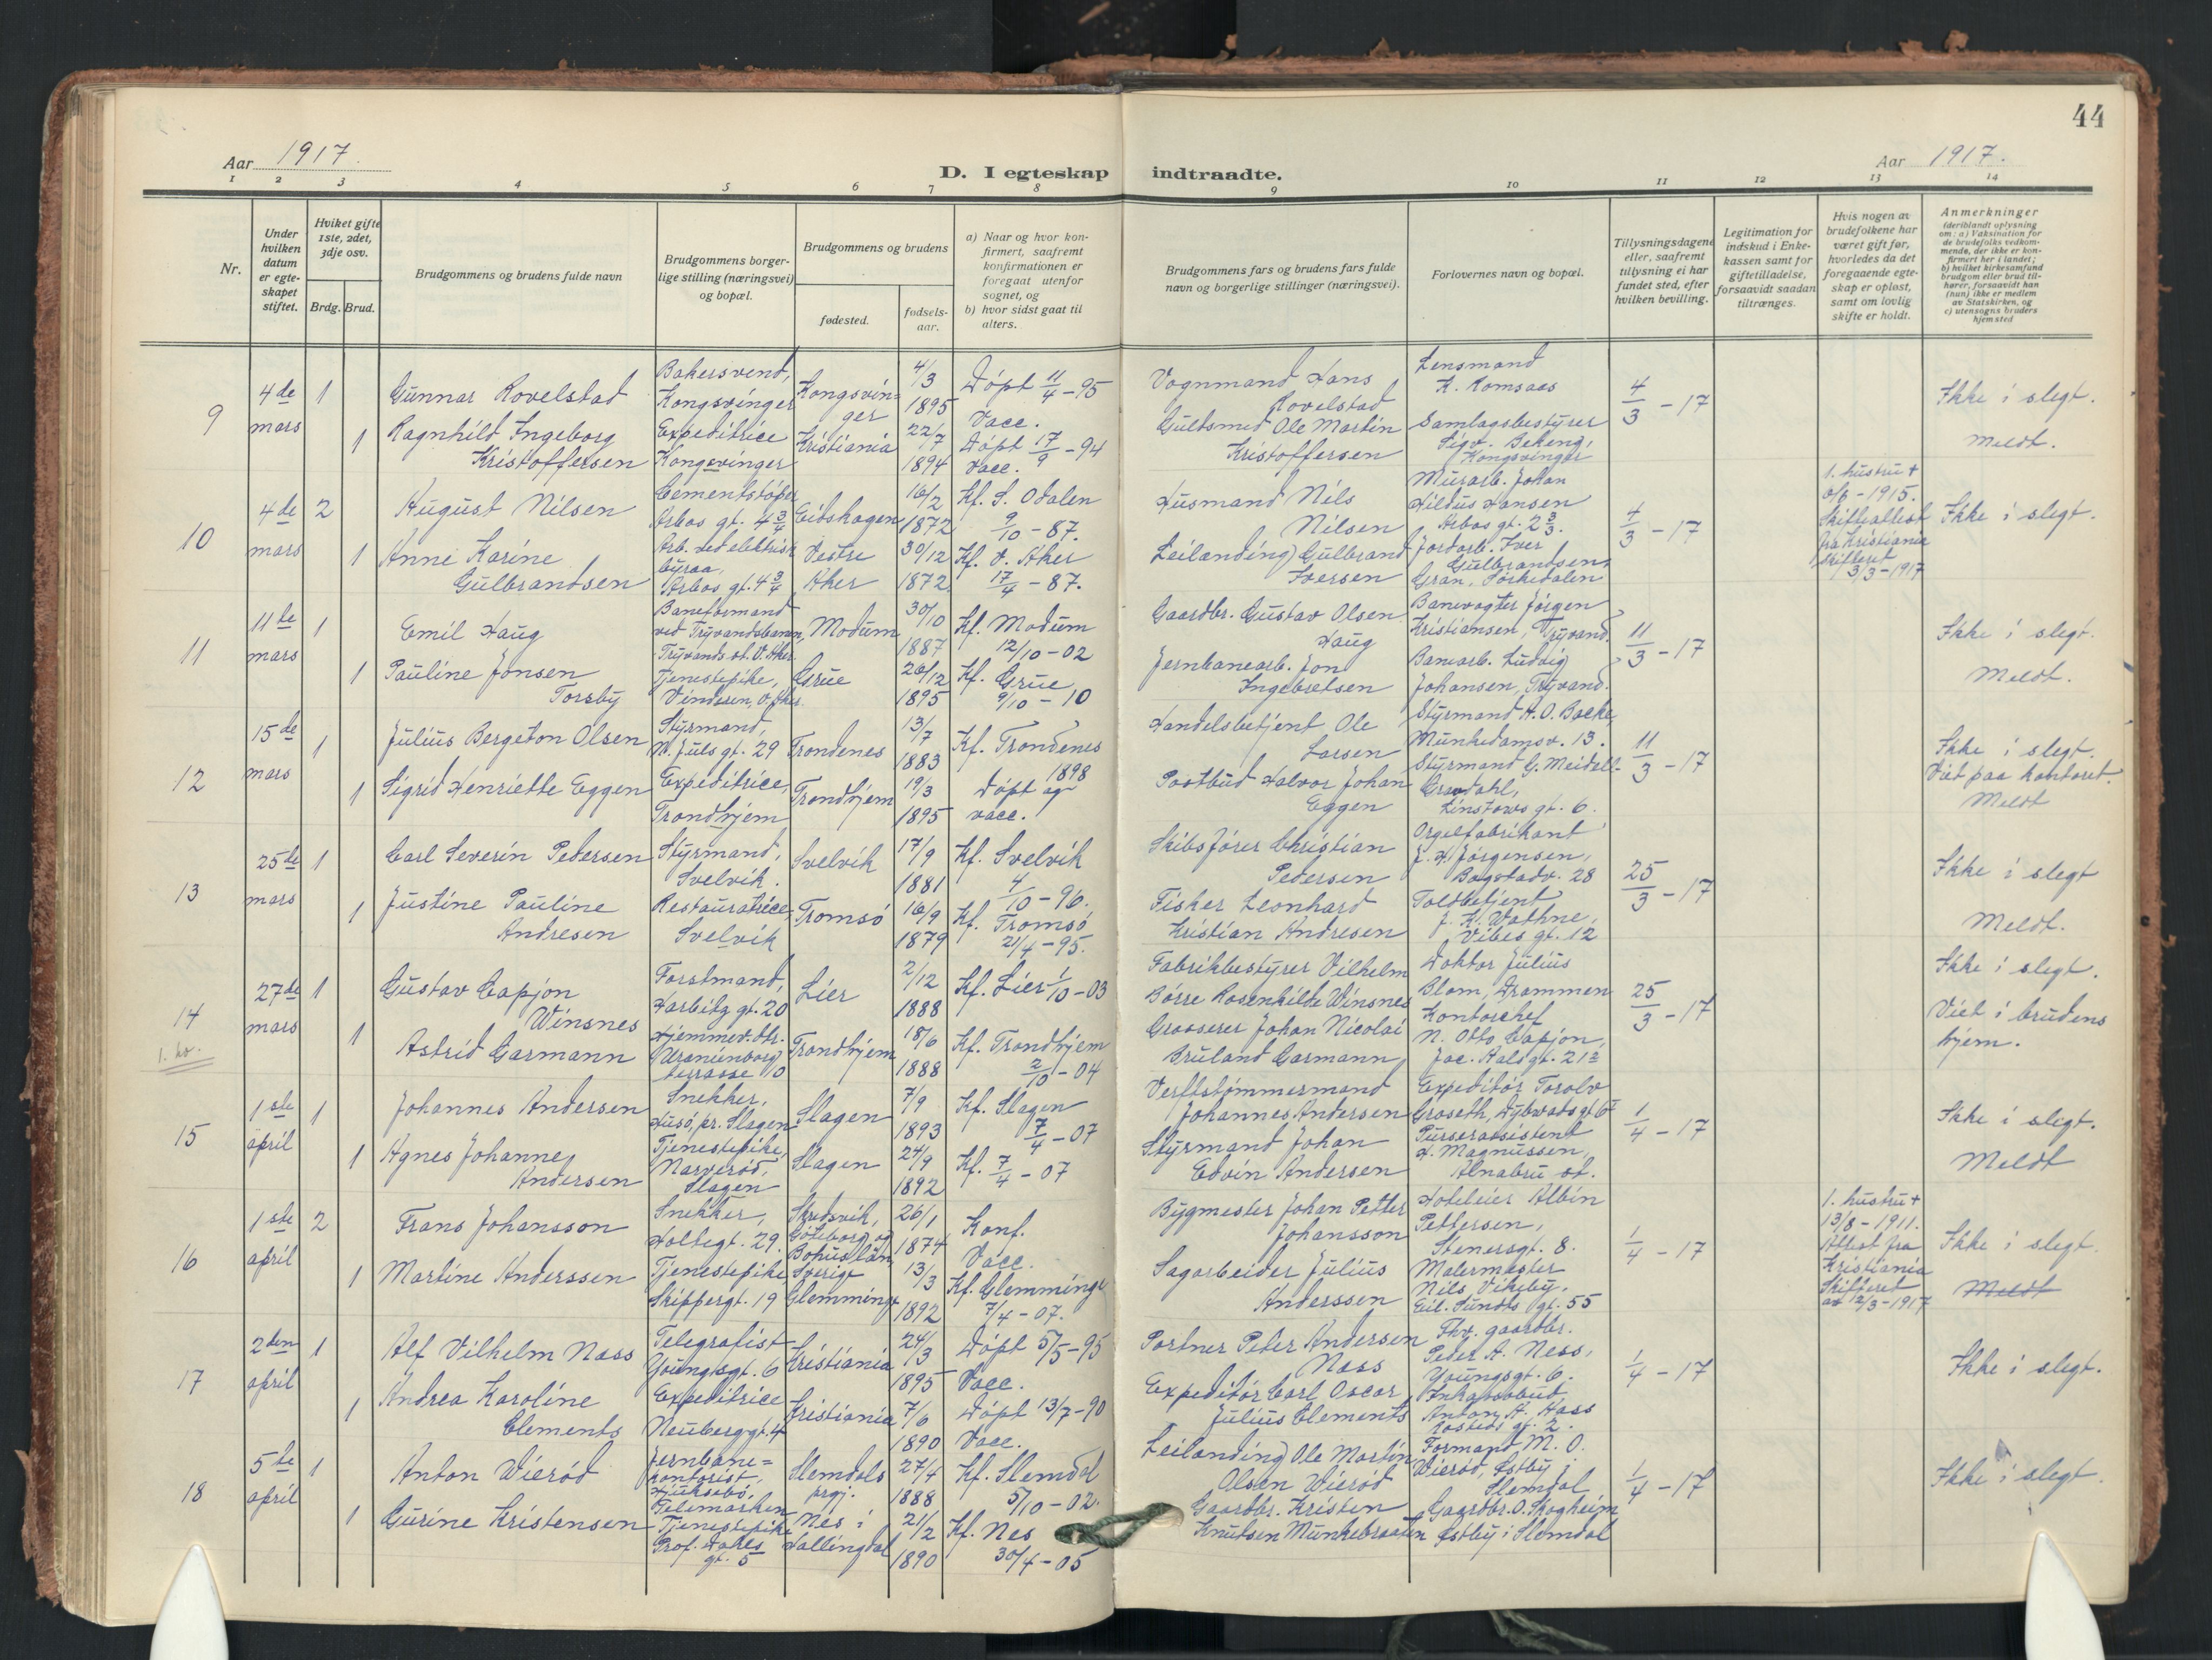 44
Aar 1917.
D. I egteskap indtraadte.
Aar 1917.
1 2 3 4 5 6 7 8 9 10 11 12 13 14
Nr.
Under hvilken datum er egteskapet stiftet.
Hviket gifte 1ste, 2det, 3dje osv.
Brdg. Brud.
Brudgommens og brudens fulde navn
Brudgommens borgerlige stilling (næringsvei) og bopæl.
Brudgommens og brudens
fødested.
fødselsaar.
a) Naar og hvor konfirmert, saafremt konfirmationen er foregaat utenfor sognet, og
b) hvor sidst gaat til alters.
Brudgommens fars og brudens fars fulde navn og borgerlige stillinger (næringsvei).
Forlovernes navn og bopæl.
Tillysningsdagene eller, saafremt tillysning ei har fundet sted, efter hvilken bevilling.
Legitimation for indskud i Enkekassen samt for giftetilladelse, forsaavidt saadan tiltrænges.
Hvis nogen av brudefolkene har været gift før, hvorledes da det foregaaende egteskap er opløst, samt om lovlig skifte er holdt.
Anmerkninger (deriblandt oplysning om: a) Vaksination for de brudefolks vedkommende, der ikke er konfirmert her i landet; b) hvilket kirkesamfund brudgom eller brud tilhører, forsaavidt han (hun) ikke er medlem av Statskirken, og c) utensogns bruders hjemsted
9
4de mars
1
Gunnar Rovelstad
Bakersvend, Kongsvinger
Kongsvinger
4/3 1895
Døpt 11/4 - 95 Vacc.
Vognmand Hans Rovelstad
Lensmand K. Romsaas
4/3 - 17
Ikke i slegt.
1
Ragnhild Ingeborg Kristoffersen
Expeditrice Kongsvinger
Kristiania
22/7 1894
Døpt 17/9 - 94 Vacc.
Guldsmed Ole Martin Kristoffersen
Samlagsbestyrer Sigv. Bekeng, Kongsvinger
Meldt.
10
4de mars
2
August Nilsen
Cementstøper Arbos gt. 4 3/4
Eidskogen
16/2 1872
Kf. S. Odalen 9/10 - 87.
Husmand Nils Nilsen
Murarb. Johan Hildus Hansen Arbos gt. 2 3/3.
4/3 - 17
1. hustru + 6/6 - 1915. Skifteattest fra Kristiania Skifteret 3/3 - 1917
Ikke i slegt.
1
Anne Karine Gulbrandsen
Arb. ved elektrisk byraa, Arbos gt. 4 3/4
Vestre Aker
30/12 1872
Kf. V. Aker 17/4 - 87.
Leilending Gulbrand Iversen
Jordarb. Iver Gulbrandsen Gran, Sørkedalen
11
11te mars
1
Emil Haug
Baneformand ved Tryvandsbanen, Tryvands st. V. Aker
Modum
30/10 1887
Kf. Modum 12/10 - 02
Gaardbr. Gustav Olsen Haug
Banevogter Jørgen Kristiansen, Tryvand.
11/3 - 17
Ikke i slegt.
1
Pauline Jonsen Torsby
Tjenestepike, Vindern, V. Aker
Grue
26/12 1895
Kf. Grue 9/10 - 10
Jernbanearb. Jon Ingebretsen
Banearb. Ludvig Johansen, Tryvand.
Meldt.
12
15de mars
1
Julius Bergeton Olsen
Styrmand, N. Juls gt. 29
Trondenes
13/7 1883
Kf. Trondenes 1898
Handelsbetjent Ole Larsen
Styrmand A. O. Backe, Munkedamsv. 13.
11/3 - 17
Ikke i slegt. Viet paa kontoret.
1
Sigrid Henriette Eggen
Expeditrice, Trondhjem
Trondhjem
19/3 1895
Døpt og vacc.
Postbud Halvor Johan Eggen
Styrmand G. Meidell Gravdahl, Linstows gt. 6.
Meldt
13
25de mars
1
Carl Severin Pedersen
Styrmand, Svelvik.
Svelvik
17/9 1881
Kf. Svelvik 4/10 - 96.
Skibsfører Christian Pedersen
Orgelfabrikant J. H. Jørgensen, Bogstadv. 28
25/3 - 17
Ikke i slegt
1
Justine Pauline Andresen
Restauratrice, Svelvik
Tromsø
16/9 1879
Kf. Tromsø 21/4 - 95.
Fisker Leonhard Kristian Andresen
Toldbetjent J. K. Wathne, Vibes gt. 12
Meldt.
14
1. kv.
27de mars
1
Gustav Capjon Winsnes
Forstmand, Harbitz gt. 20
Lier
2/12 1888
Kf. Lier 1/10 - 03
Fabrikbestyrer Vilhelm Børre Rosenkilde Winsnes
Doktor Julius Blom, Drammen
25/3 - 17
Ikke i slegt.
1
Astrid Garmann
Hjemmev. dtr. Uranienborg terrasse 10
Trondhjem
18/6 1888
Kf. Trondhjem 2/10 - 04
Grosserer Johan Nicolai Bruland Garmann
Kontorchef N. Otto Capjon, Jac. Aalsgt. 21
Viet i brudens hjem.
15
1ste april
1
Johannes Andersen
Snekker, Husø, pr. Slagen
Slagen
7/9 1893
Kf. Slagen 7/4 - 07
Verftstømmermand Johannes Andersen
Expeditør Torolv Groseth, Dybwadsgt 6
1/4 - 17
Ikke i slegt.
1
Agnes Johanne Andersen
Tjenestepike, Narverød, Slagen
Slagen
24/9 1892
Kf. 7/4 - 07
Styrmand Johan Edvin Andersen
Purserassistent H. Magnussen, Alnabru st.
Meldt
16
1ste april
2
Frans Johansson
Snekker, Holtegt. 29.
Skredsvik, Göteborg og Bohuslän, Sverige
26/1 1874
Konf. Vacc.
Bygmester Johan Petter Johansson
Hoteleier Albin Pettersen, Stenersgt. 8.
1/4 - 17
1. hustru + 13/8 - 1911. Attest fra Kristiania Skifteret av 12/3 - 1917
Ikke i slegt.
1
Martine Anderssen
Tjenestepike Skippergt. 19
Glemminge
13/3 1892
Kf. Glemminge 7/4 - 07.
Sagarbeider Julius Anderssen
Malermester Nils Vikeby, Eil. Sundts gt. 55
Meldt
17
2den april
1
Alf Vilhelm Næss
Telegrafist Youngsgt. 6
Kristiania
24/3 1895
Døpt 5/5 - 95 Vacc.
Portner Peter Andersen Næss
Fhv. gaardbr. Peder A. Ness, Youngsgt. 6.
1/4 - 17
Ikke i slegt.
1
Andrea Karoline Clements
Expeditrice Neuberggt. 4
Kristiania
7/6 1890
Døpt 13/7 - 90 Vacc.
Expeditør Carl Oscar Julius Clements
Inkassobud Anton A. Hass gt. 2.
18
5te april
1
Anton Wierød
Jernbane= kontorist, Hjuksebø, Telemarken
Slemdals prgj.
27/4 1888
Kf. Slemdal 5/10 - 02.
Leilending Ole Martin Olsen Wierød
Formand M. O. Wierød, Østby i Slemdal
1/4 - 17
Ikke i slegt.
1
Gurine Kristensen
Tjenestepike Prof. Dahls gt. 5
Nes i Hallingdal
21/2 1890
Kf. Nes 30/4 - 05
Gaardbr. Kristen Knutsen Munkebraaten
Gaardbr. O. Skogheim Østby i Slemdal